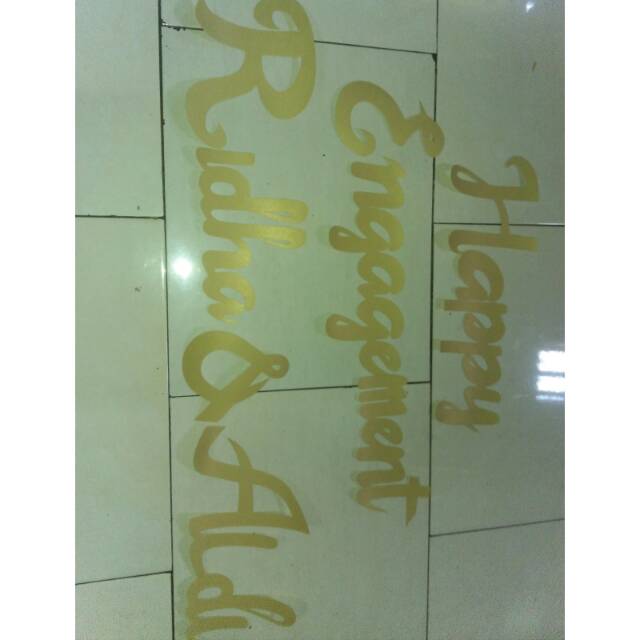 Happy
Engagement
Ridha & Aldi